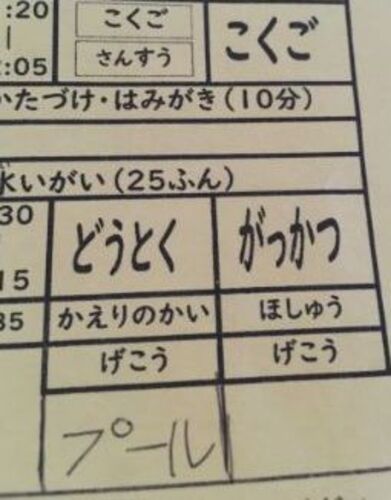 :20
こくご
こくご
|
さんすう
:05
かたづけ・はみがき(10分)
水いがい(25ふん)
30
どうとく
がっかつ
15
35
かえりのかい
ほしゅう
げこう
げこう
プール